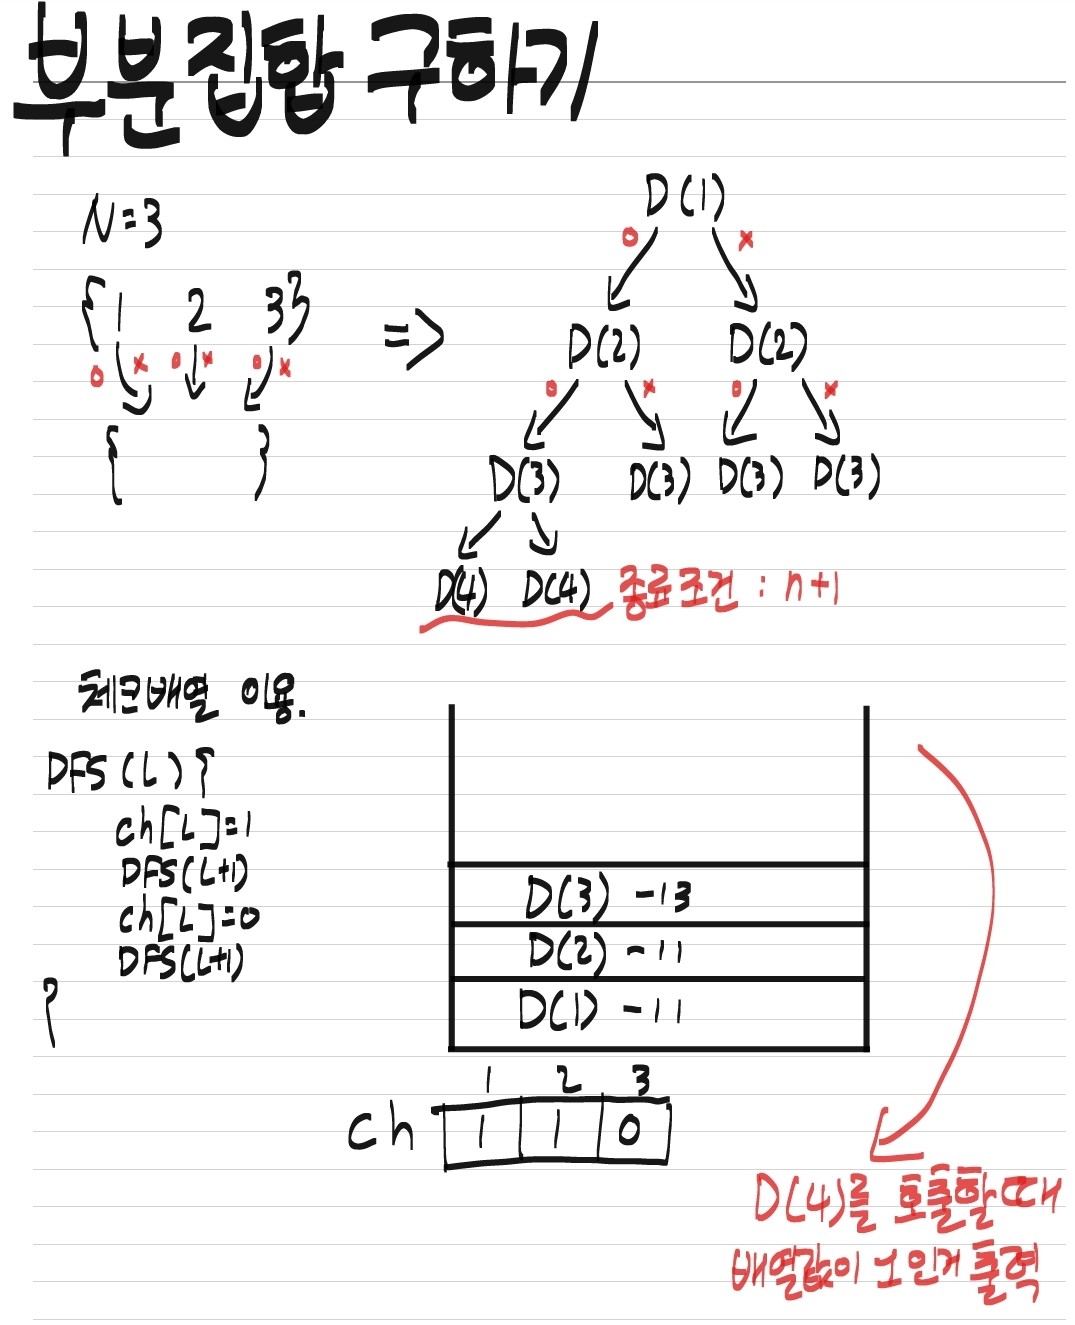 부분집합 구하기
N=3
{ 1 2 3}
o x o x o x
{ }
=>
D(1)
o x
D(2) D(2)
o x o x
D(3) D(3) D(3) D(3)
D(4) D(4) 종료조건 : n+1
체크배열 이용.
DFS(L){
ch[L]=1
DFS(L+1)
ch[L]=0
DFS(L+1)
}
D(3) -13
D(2) -11
D(1) -11
1 2 3
ch 1 1 0
D(4)를 호출할때
배열값이 1인거 출력